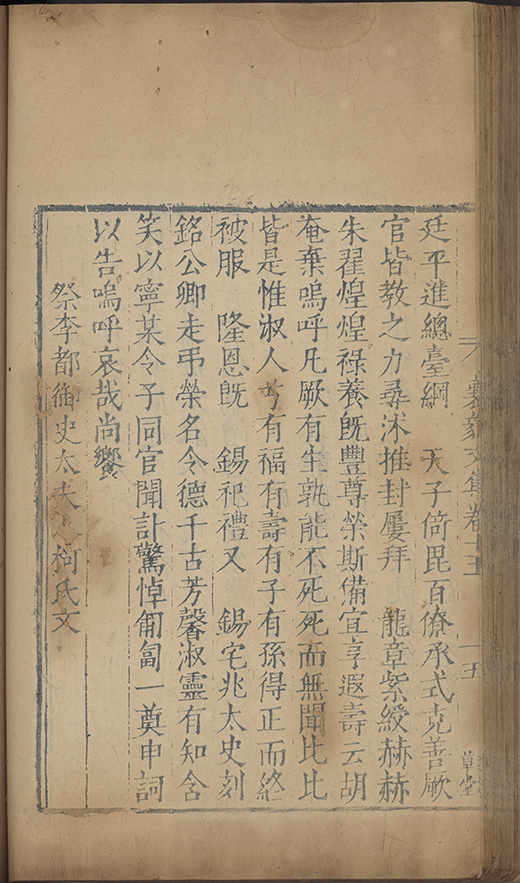 廷平進總臺綱　天子倚毘百僚承式克善厥
官皆教之力尋沐推封屢拜　龍章紫綬赫赫
朱翟煌煌祿養既豐尊榮斯備宜享遐壽云胡
奄棄嗚呼凡厥有生孰能不死死而無聞比比
皆是惟淑人有福有壽有子有孫得正而終
被服　隆恩既　錫祀禮又　錫宅兆太史刻
銘公卿走弔榮名令德千古芳馨淑靈有知含
笑以寧某令子同官聞訃驚悼匍匐一奠申詞
以告嗚呼哀哉尚饗
祭李都御史太夫人柯氏文
文集卷十五
十五
草堂